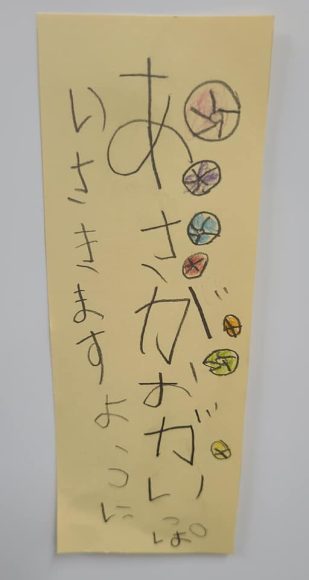 あさがおがいっぱ
いさきますように